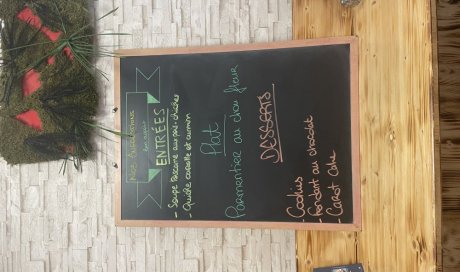 Nos Suggestions
du midi
ENTRÉES
- Soupe Toscane aux pois-chiches
- Quiche carotte et cumin
Plat
Parmentier au chou fleur
DESSERTS
- Cookies
- Fondant au chocolat
- Carot Cake